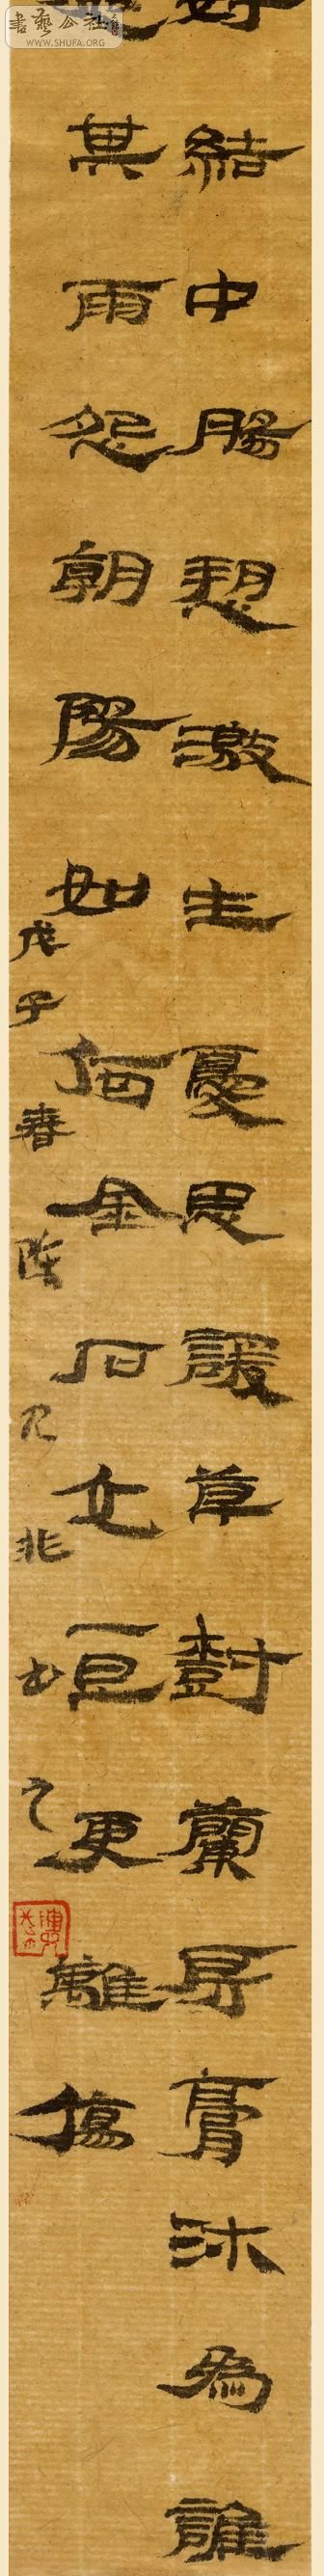 書藝公社
WWW.SHUFA.ORG
好結中腸激生憂思諼草尌蘭房膏沐為誰
其雨怨朝陽如何金石交一旦更離傷
戊子春陳非書之